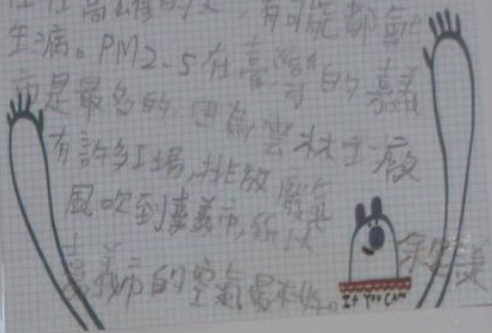 住在高樓的人,有可能都會
生病。PM2.5在臺灣的嘉義
市是最多的,因為雲林一廠
有許多工場,排放廢氣
風吹到嘉義市,所以
嘉義市的空氣最不好。
If You CAN